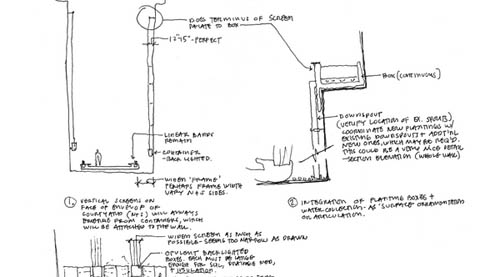 DOES TERMINUS OF SCREEN
RELATE TO BOX
12"-15"-PERFECT
BOX (CONTINUOUS)
DOWNSPOUT
(VERIFY LOCATION OF EX. SPOUTS),
COORDINATE NEW PLANTINGS W/
EXISTING DOWNSPOUT + ADDT'NL
NEW ONES, WHICH MAY BE REQ'D.
THIS COULD BE A VERY NICE DETAIL
-SECTION ELEVATION (WHOLE WALL)
LINEAR BANDS
REMAIN
CONTAINER
BACK LIGHTED.
WIDEN 'FRAME'
PERHAPS FRAME WIDTH
VARY N+S SIDES.
1. VERTICAL SCREENS ON
FACE OF ENVELOP OF
COURTYARD (N+S) WILL ALWAYS
EMERGE FROM CONTAINERS, WHICH
WILL BE ATTACHED TO THE WALL.
2 INTEGRATION OF PLANTING BOXES +
WATER COLLECTION. AS "SURFACE" ORNAMENTATION
OR ARTICULATION.
WIDEN SCREEN AS MUCH AS
POSSIBLE - SEEMS TOO NARROW AS DRAWN
OPULENT BACKLIGHTED
BOXES. EACH MUST BE LARGE
ENOUGH FOR SOIL, DRAINAGE MED,
+ INSULATION.